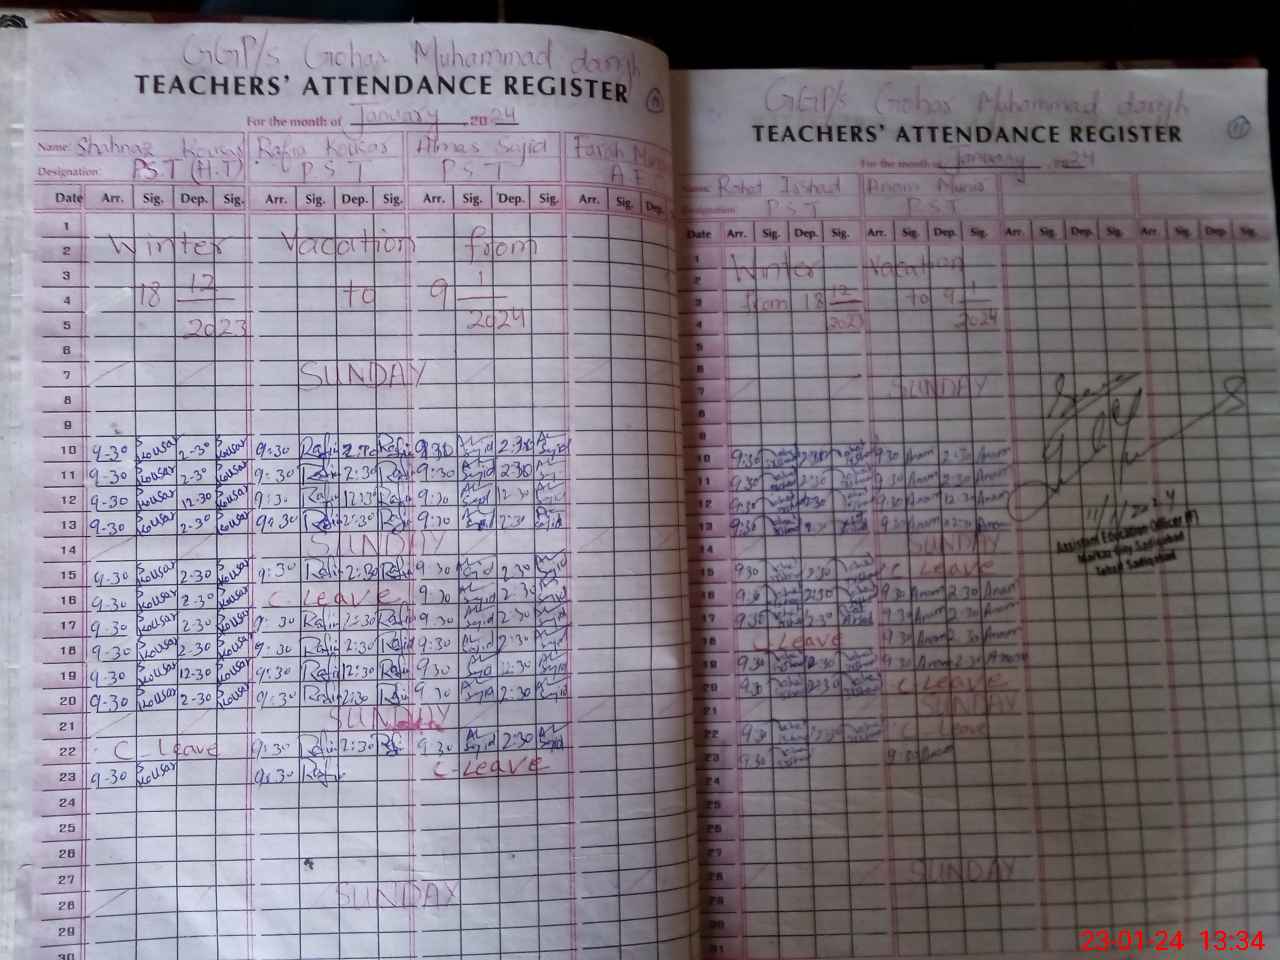 GGP/s Gohar Muhammad dargh
TEACHERS' ATTENDANCE REGISTER
For the month of January 2024
Name: Shahnaz Kousar Rafia Kousar Almas Sajid Farah
Designation: P.S.T (H.T) P S T P S T
Date Arr. Sig. Dep. Sig. Arr. Sig. Dep. Sig. Arr. Sig. Dep. Sig. Arr. Sig. Dep.
1
2 Winter Vacation from
3
4 18 12 2023 to 9 1 2024
5
6
7 SUNDAY
8
9
10 9-30 Kousar 2-30 Kousar 9:30 Rafia 2:30 Rafia 9:30 Sajid 2:30 Sajid
11 9-30 Kousar 2-30 Kousar 9:30 Rafia 2:30 Rafia 9:30 Sajid 2:30 Sajid
12 9-30 Kousar 12-30 Kousar 9:30 Rafia 12:30 Rafia 9:30 Sajid 12:30 Sajid
13 9-30 Kousar 2-30 Kousar 9:30 Rafia 2:30 Rafia 9:30 Sajid 2:30 Sajid
14 SUNDAY
15 9-30 Kousar 2-30 Kousar 9:30 Rafia 2:30 Rafia 9:30 Sajid 2:30 Sajid
16 9-30 Kousar 2-30 Kousar C-Leave 9:30 Sajid 2:30 Sajid
17 9-30 Kousar 2-30 Kousar 9:30 Rafia 2:30 Rafia 9:30 Sajid 2:30 Sajid
18 9-30 Kousar 2-30 Kousar 9:30 Rafia 2:30 Rafia 9:30 Sajid 2:30 Sajid
19 9-30 Kousar 12-30 Kousar 9:30 Rafia 12:30 Rafia 9:30 Sajid 12:30 Sajid
20 9-30 Kousar 2-30 Kousar 9:30 Rafia 2:30 Rafia 9:30 Sajid 2:30 Sajid
21 SUNDAY
22 C-Leave 9:30 Rafia 2:30 Rafia 9:30 Sajid 2:30 Sajid
23 9-30 Kousar 9:30 Rafia C-Leave
24
25
26
27
28 SUNDAY
29
30
GGP/s Gohar Muhammad dargh
TEACHERS' ATTENDANCE REGISTER
For the month of January 2024
Name: Rahat Irshad Anam Munir
Designation: P S T P S T
Date Arr. Sig. Dep. Sig. Arr. Sig. Dep. Sig. Arr. Sig. Dep. Sig. Arr. Sig. Dep. Sig.
1 Winter Vacation
2
3 from 18 12 2023 to 9 1 2024
4
5
6
7 SUNDAY
8
9
10 9:30 2:30 9:30 Anam 2:30 Anam
11 9:30 2:30 9:30 Anam 2:30 Anam
12 9:30 12:30 9:30 Anam 12:30 Anam
13 9:30 2:30 9:30 Anam 2:30 Anam
14 SUNDAY
15 9:30 2:30 C-Leave
16 9:30 2:30 9:30 Anam 2:30 Anam
17 9:30 2:30 9:30 Anam 2:30 Anam
18 C-Leave 9:30 Anam 2:30 Anam
19 9:30 12:30 9:30 Anam 2:30 Anam
20 9:30 2:30 C-Leave
21 SUNDAY
22 9:30 2:30 C-Leave
23 9:30 9:30 Anam
25
26
27
28 SUNDAY
29
30
31
11/1/2024
Assistant Education Officer (F)
Markaz City Sadiqabad
Tehsil Sadiqabad
23-01-24 13:34